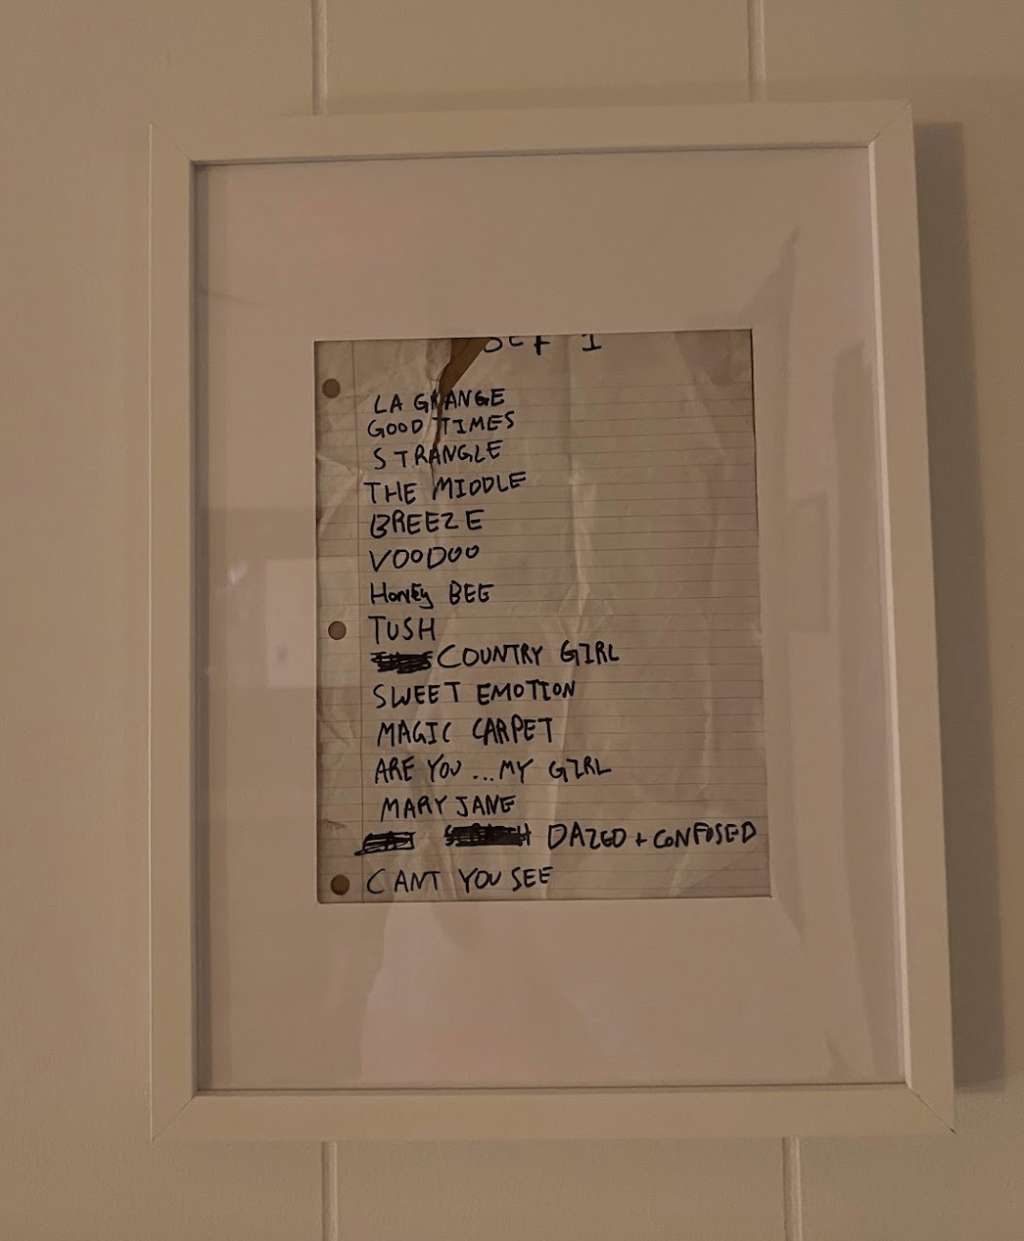 Set 1
LA GRANGE
GOOD TIMES
STRANGLE
THE MIDDLE
BREEZE
VOODOO
HonEy BEE
TUSH
COUNTRY GIRL
SWEET EMOTION
MAGIC CARPET
ARE YOU ... MY GIRL
MARY JANE
DAZED + CONFUSED
CANT YOU SEE